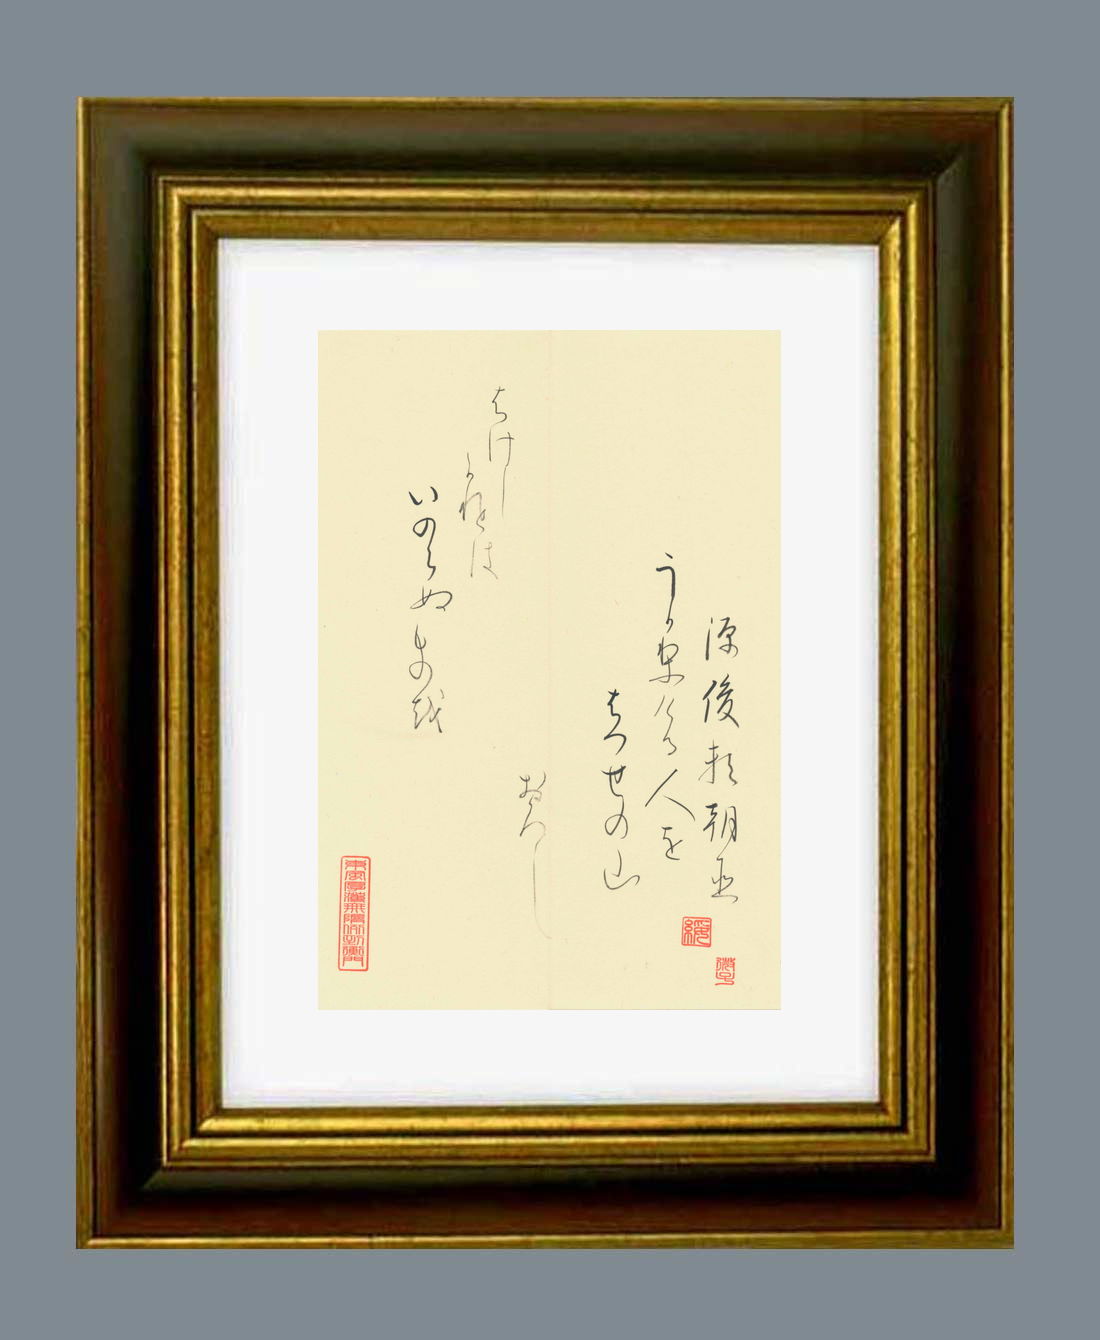 源俊頼朝臣
うかりける人を
はつせの山
おろし
はけし
かれとは
いのらぬもの越